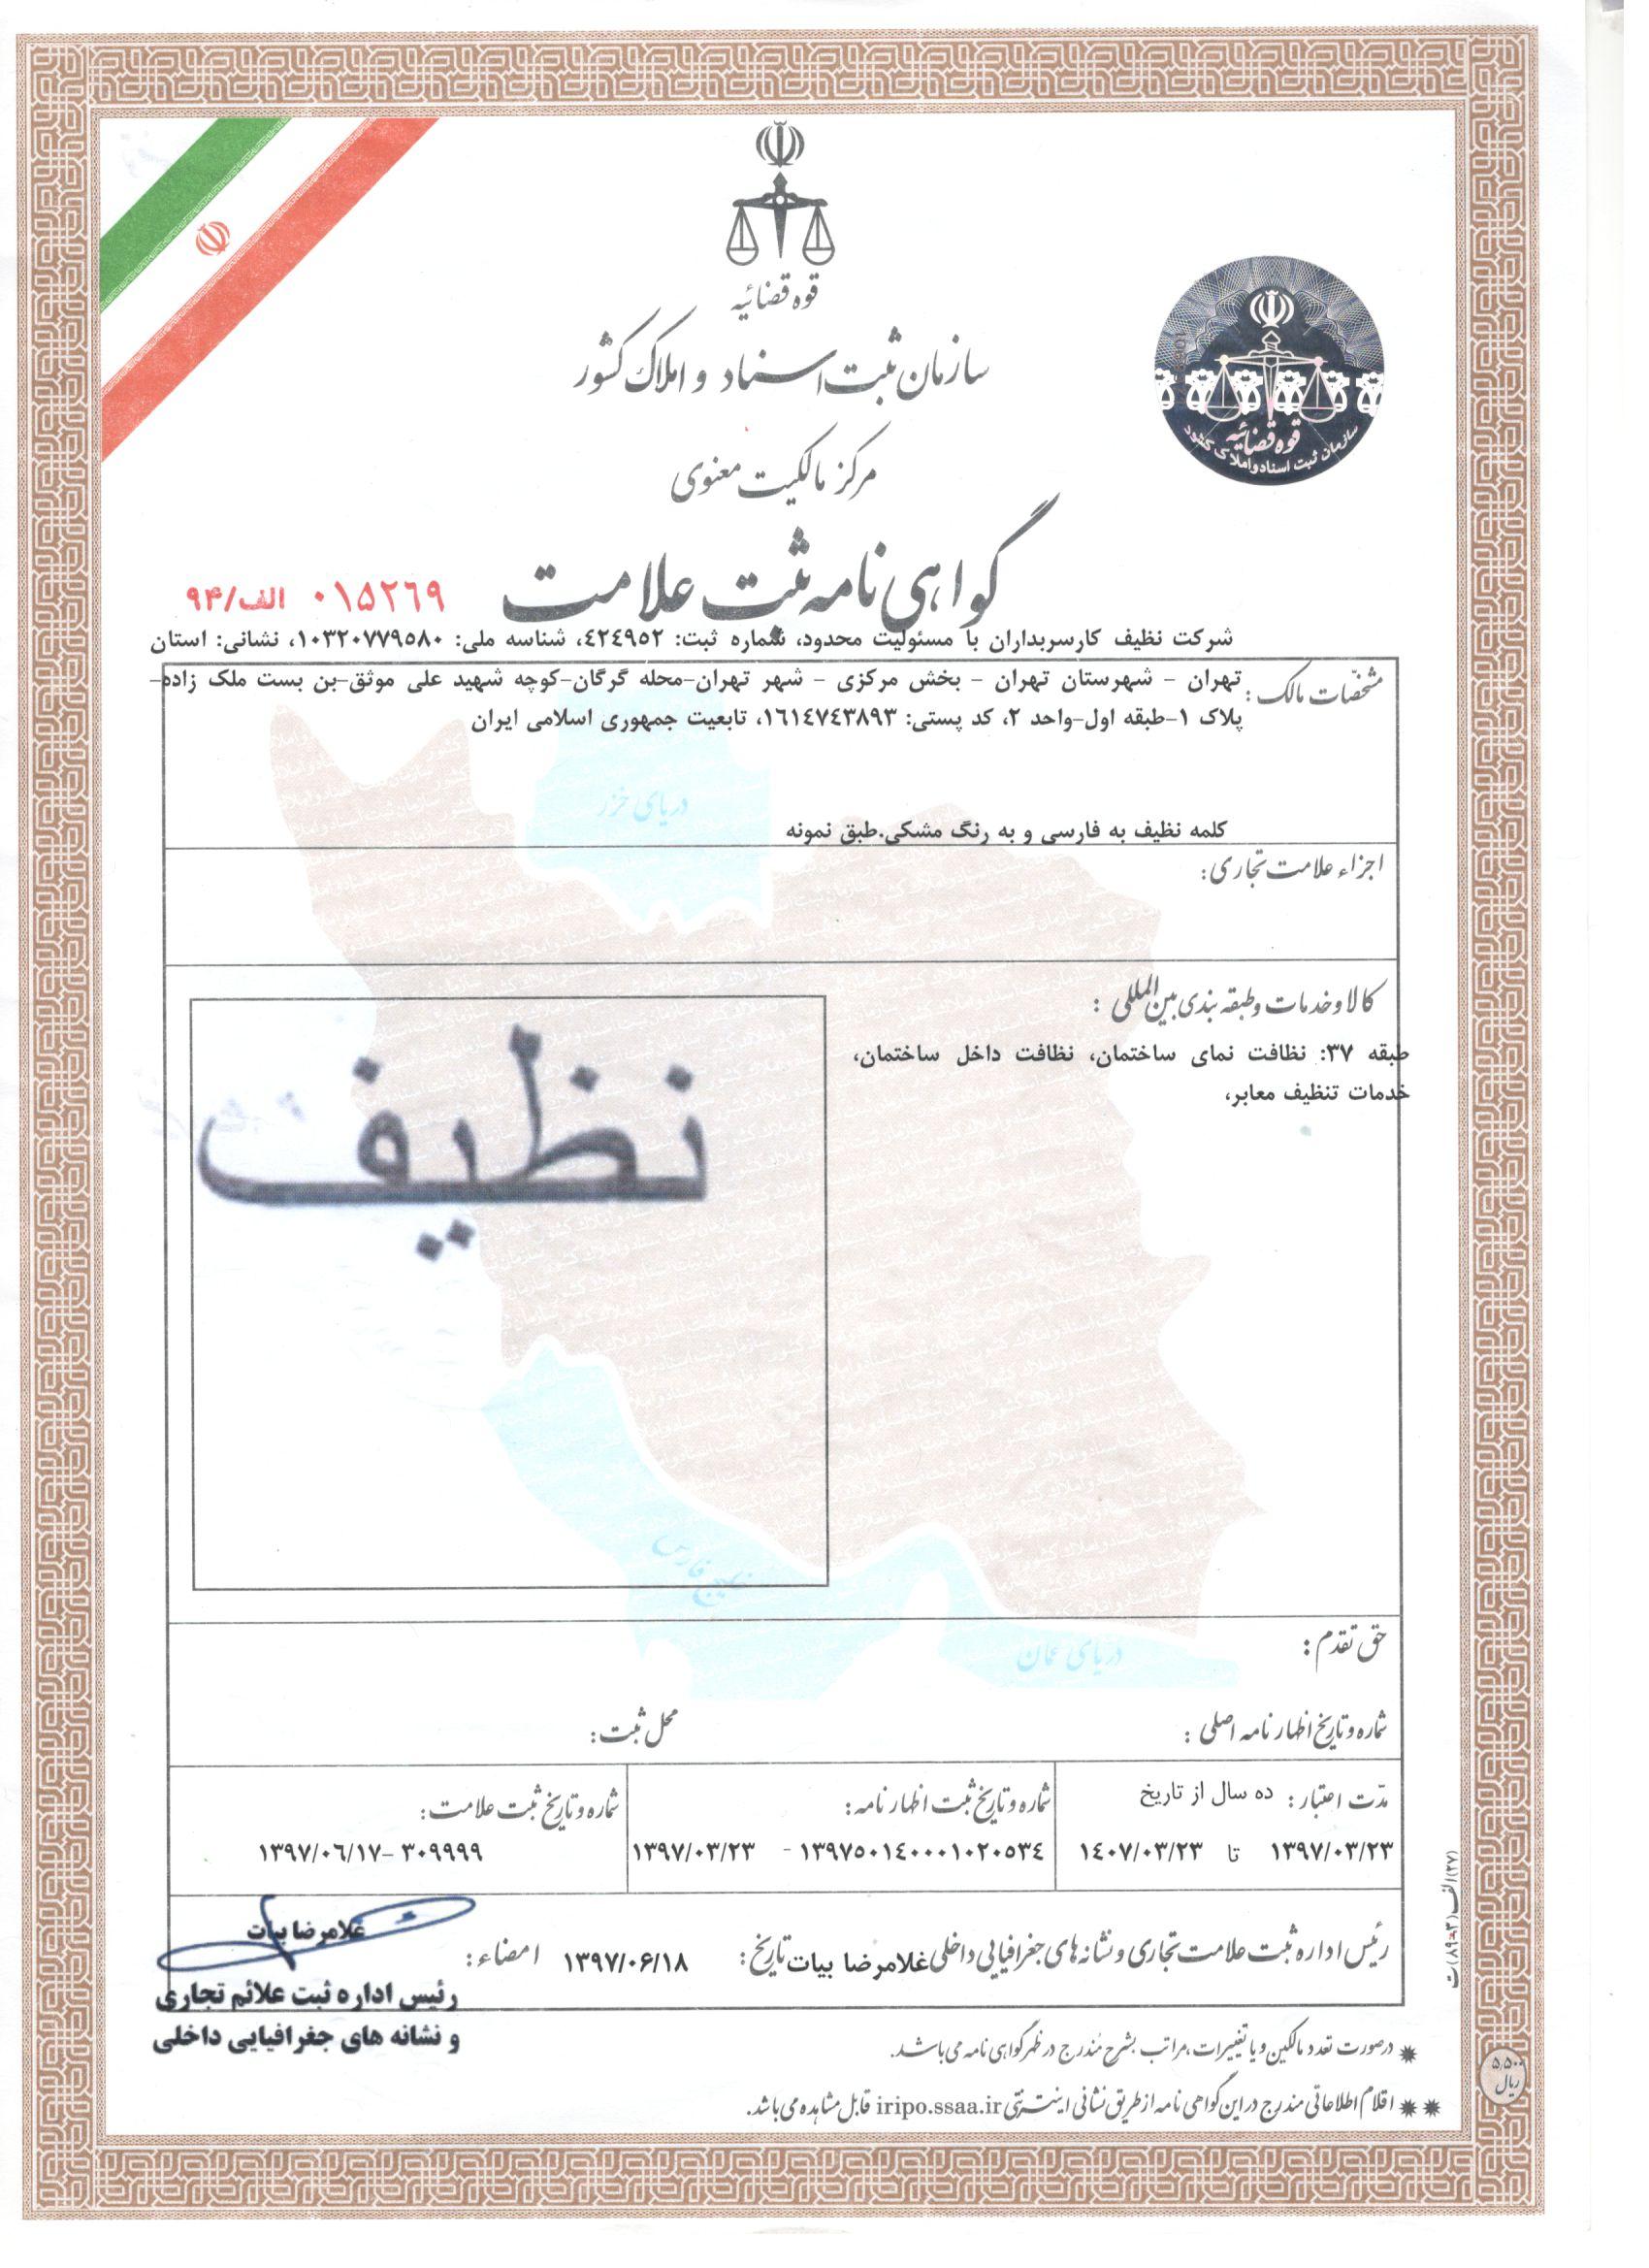 قوه قضائیه
سازمان ثبت اسناد و املاک کشور
قوه قضائیه
سازمان ثبت اسناد و املاک کشور
مرکز مالکیت معنوی
گواهی نامه ثبت علامت
۰۱۵۲۶۹ الف/۹۴
شرکت نظیف کارسربداران با مسئولیت محدود، شماره ثبت: ٤٢٤٩٥٢، شناسه ملی: ١٠٣٢٠٧٧٩٥٨٠، نشانی: استان
مشخصّات مالک: تهران - شهرستان تهران - بخش مرکزی - شهر تهران-محله گرگان-کوچه شهید علی موثق-بن بست ملک زاده-
پلاک ١-طبقه اول-واحد ٢، کد پستی: ١٦١٤٧٤٣٨٩٣، تابعیت جمهوری اسلامی ایران
دریای خزر
کلمه نظیف به فارسی و به رنگ مشکی.طبق نمونه
اجزاء علامت تجاری:
کالا و خدمات و طبقه بندی بین المللی:
طبقه ٣٧: نظافت نمای ساختمان، نظافت داخل ساختمان،
خدمات تنظیف معابر،
نظیف
خلیج فارس
حق تقدم:
دریای عمان
شماره و تاریخ اظهار نامه اصلی:
محل ثبت:
مدّت اعتبار: ده سال از تاریخ
١٣٩٧/٠٣/٢٣ تا ١٤٠٧/٠٣/٢٣
شماره و تاریخ ثبت اظهار نامه:
١٣٩٧٥٠١٤٠٠٠١٠٢٠٥٣٤ - ١٣٩٧/٠٣/٢٣
شماره و تاریخ ثبت علامت:
٣٠٩٩٩٩ -١٣٩٧/٠٦/١٧
رئیس اداره ثبت علامت تجاری و نشانه های جغرافیایی داخلی غلامرضا بیات تاریخ: ۱۳۹۷/۰۶/۱۸ امضاء:
غلامرضا بیات
رئیس اداره ثبت علائم تجاری
و نشانه های جغرافیایی داخلی
درصورت تعدد مالکین و یا تغییرات، مراتب بشرح مُندرج در ظهر گواهی نامه می باشد.
اقلام اطلاعاتی مندرج در این گواهی نامه از طریق نشانی اینترنتی iripo.ssaa.ir قابل مشاهده می باشد.
۵,۵۰۰
ریال